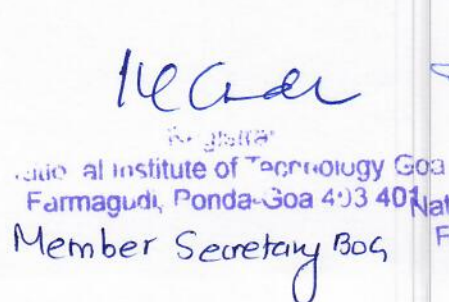 Registrar
National Institute of Technology Goa
Farmagudi, Ponda-Goa 403 401
Nat
F
Member Secretary BOG